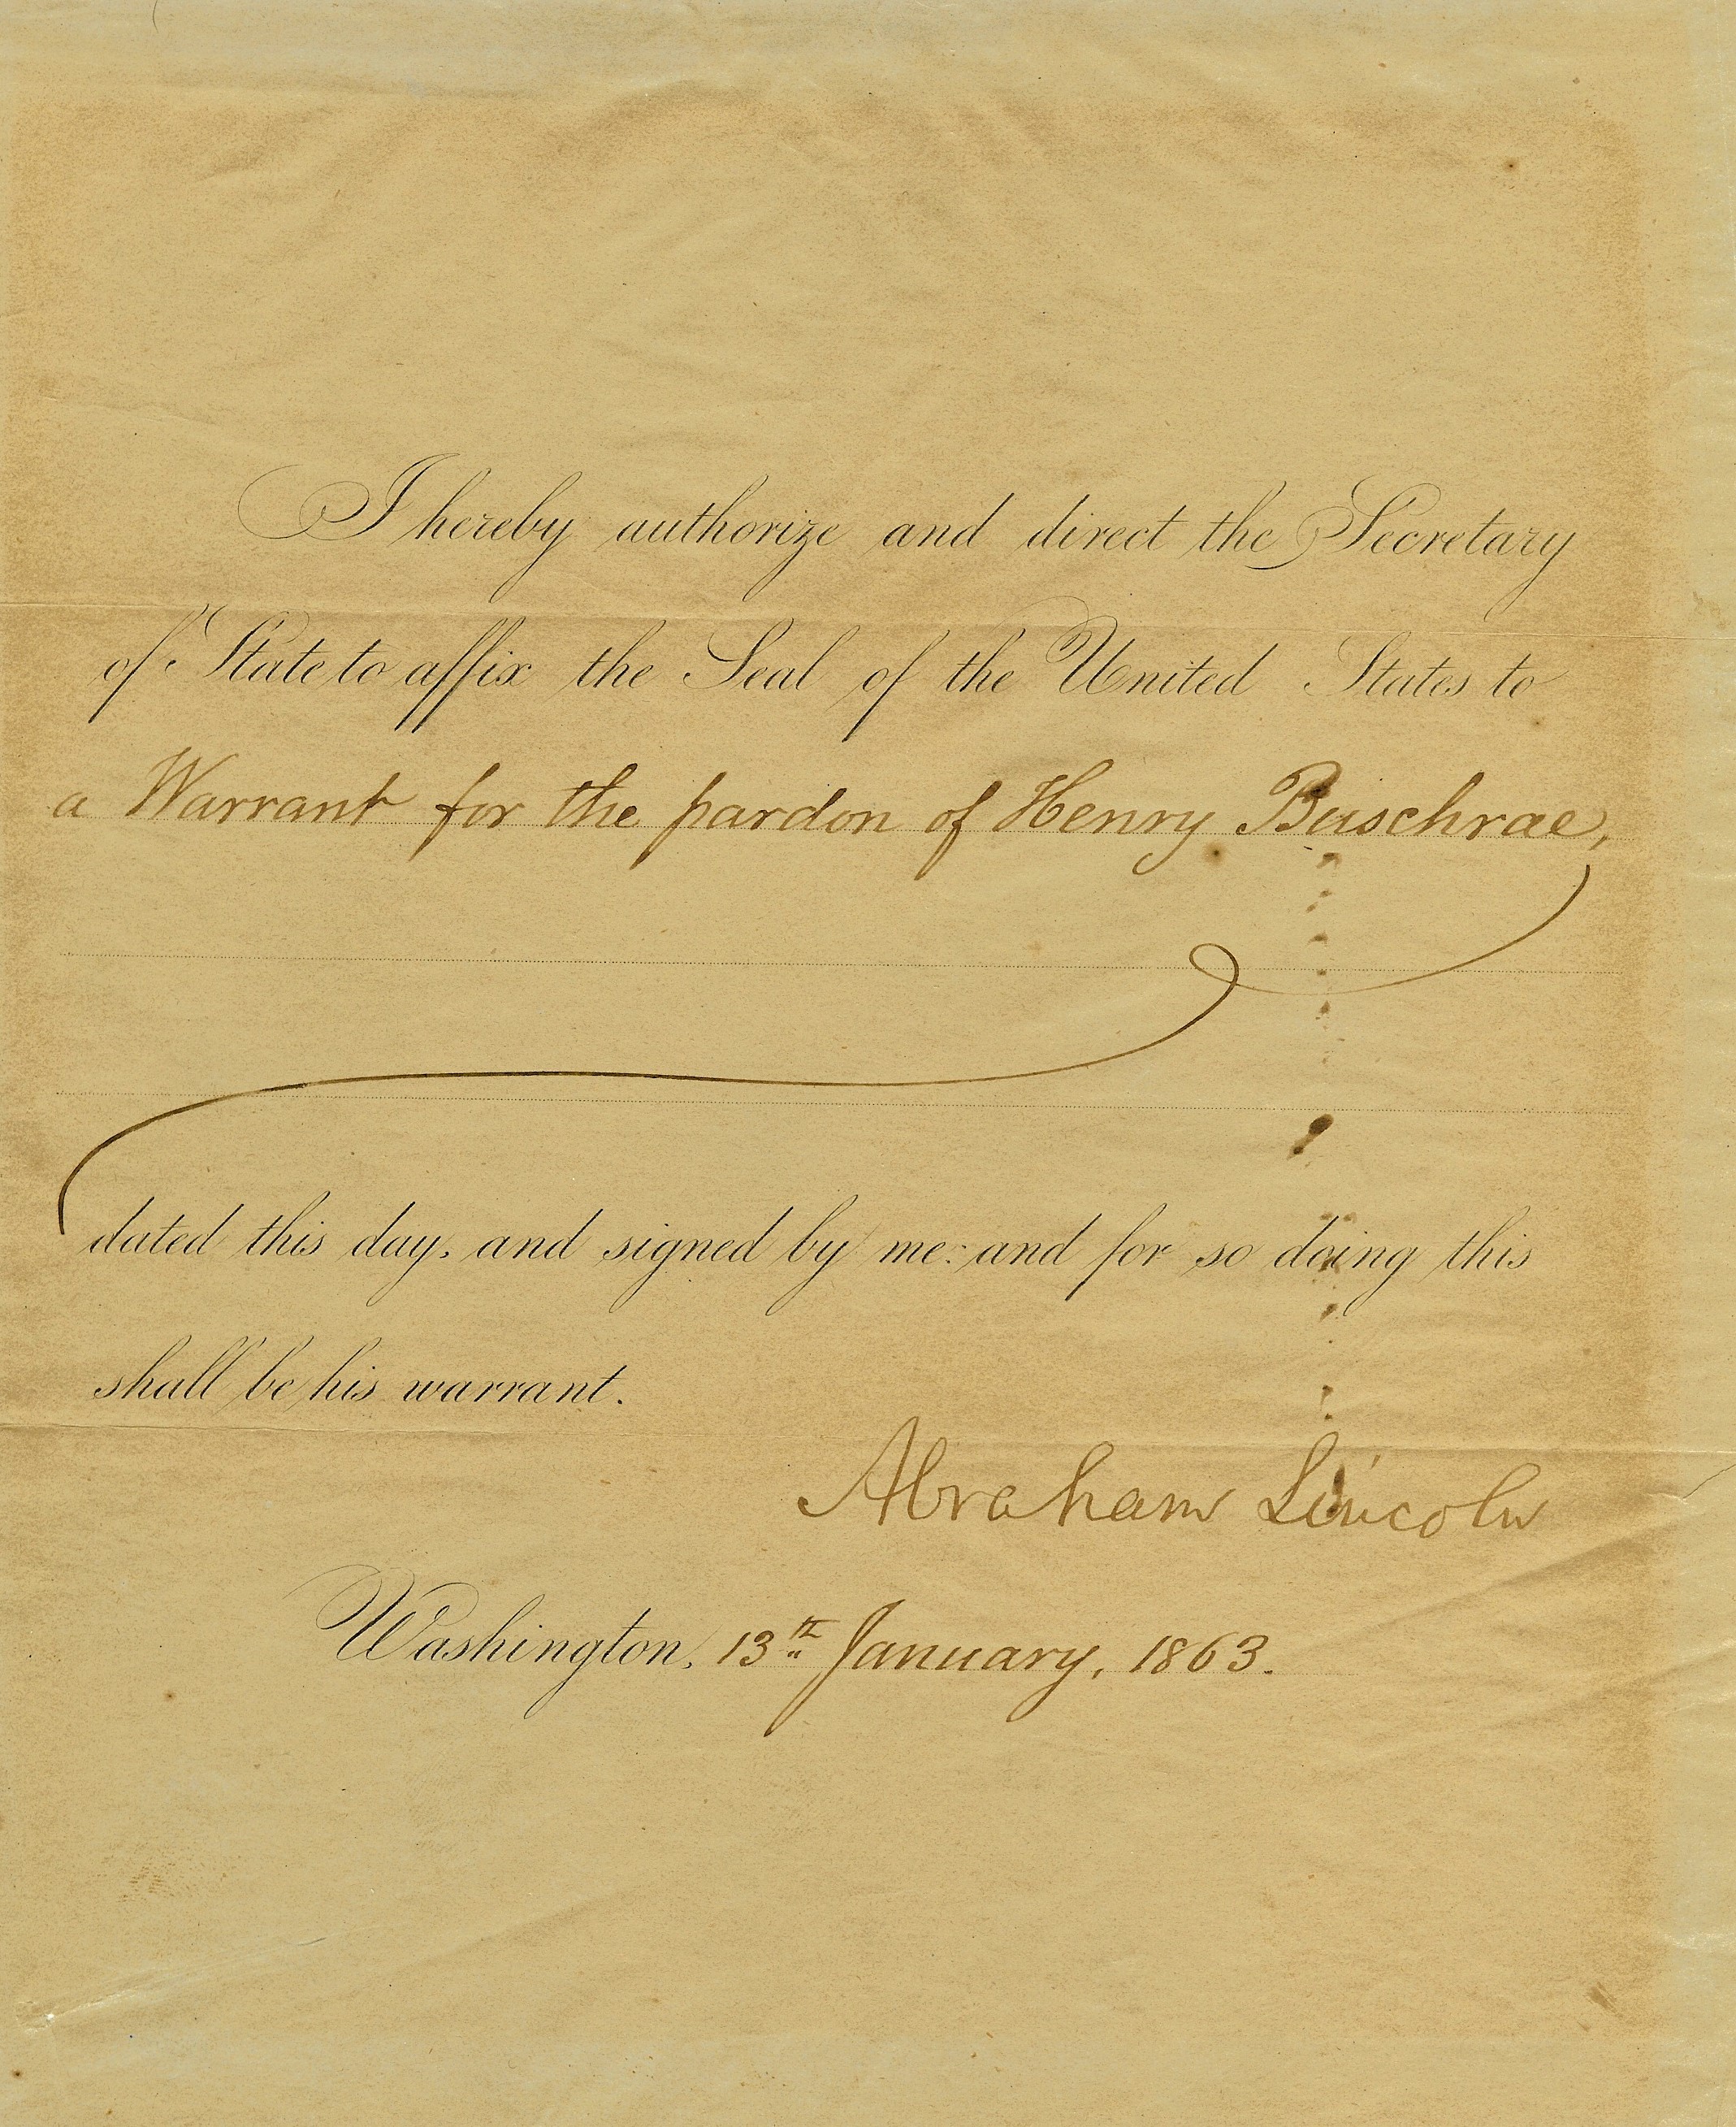 I hereby authorize and direct the Secretary
of State to affix the Seal of the United States to
a Warrant for the pardon of Henry Buschrae,
dated this day, and signed by me: and for so doing this
shall be his warrant.
Abraham Lincoln
Washington, 13th January, 1863.